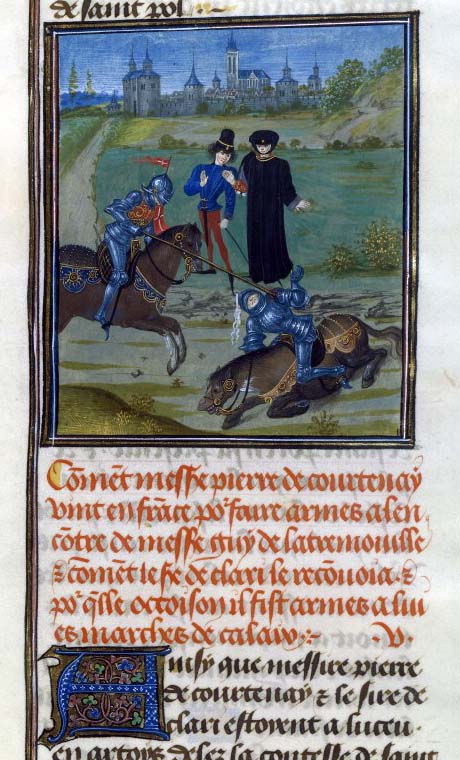 de saint pol
Comẽt messẽ pierre de courtenay
vint en frãce põ faire armes a len
cõtre de messẽ guy de latremouille
& comẽt le sẽ de clari le recõuoia &
põ q̃lle occoison il fist armes a lui
es marches de calaiz V.
Ainsy que messire pierre
de courtenay & le sire de
clari estoyent a luceu
en artoys delez la contesse de saint